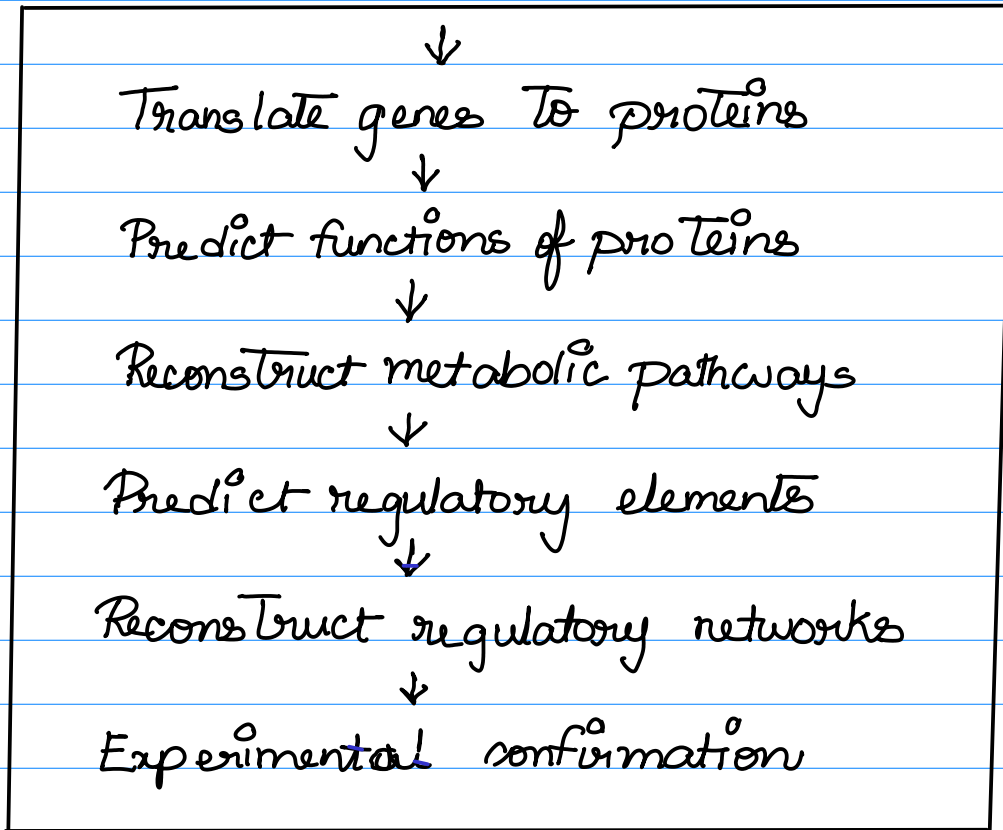 ↓
Translate genes to proteins
↓
Predict functions of proteins
↓
Reconstruct metabolic pathways
↓
Predict regulatory elements
↓
Reconstruct regulatory networks
↓
Experimental confirmation